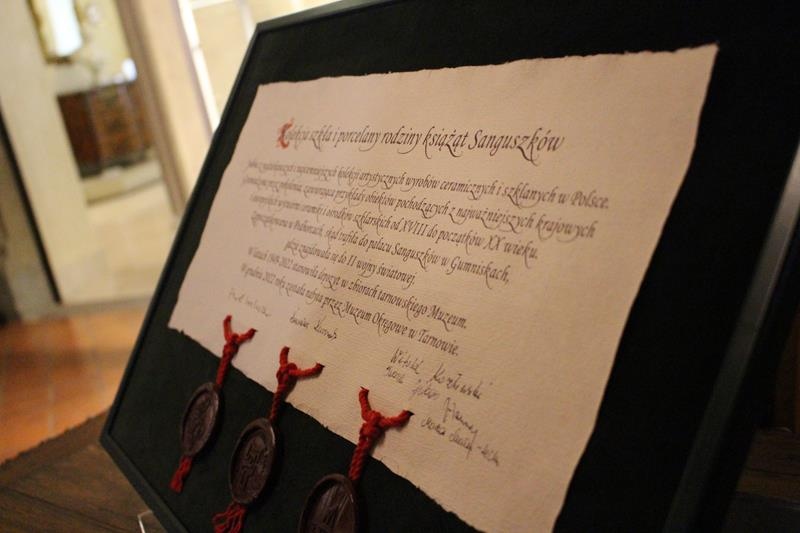 Kolekcja szkła i porcelany rodziny książąt Sanguszków
Jedna z najstarszych i najcenniejszych kolekcji artystycznych wyrobów ceramicznych i szklanych w Polsce.
przez pokolenia, zawierająca przykłady obiektów pochodzących z najważniejszych krajowych
i europejskich wytwórni ceramiki i ośrodków szklarskich od XVIII do początków XX wieku.
Zapoczątkowana w Podhorcach, skąd trafiła do pałacu Sanguszków w Gumniskach,
gdzie znajdowała się do II wojny światowej.
W latach 1949-2022 stanowiła depozyt w zbiorach tarnowskiego Muzeum.
W grudniu 2022 roku została nabyta przez Muzeum Okręgowe w Tarnowie.
Witold